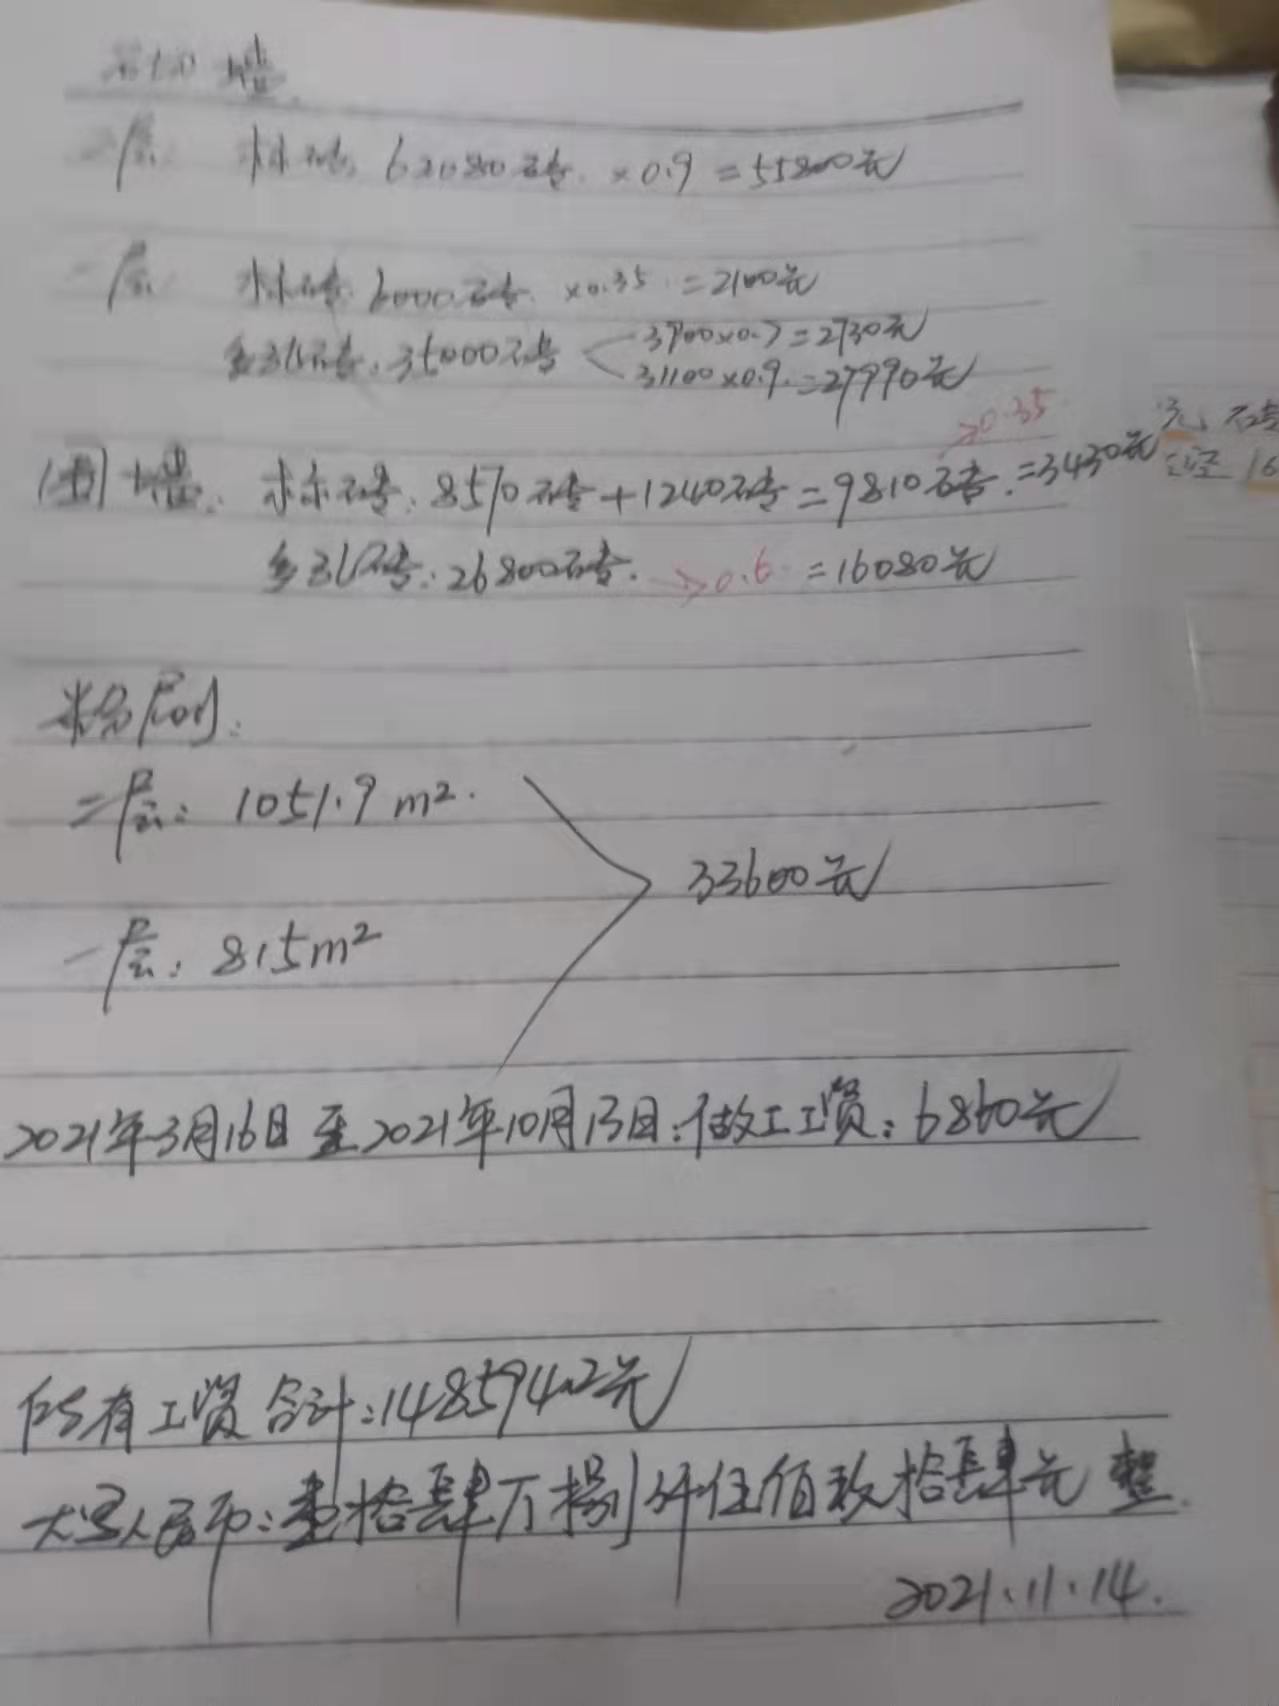 墙
二层 标砖 62080砖 ×0.9 =55800元
一层 标砖 6000砖 ×0.35 =2100元
多孔砖: 35000砖 3900×0.7=2730元
31100×0.9=27990元
×0.35
围墙: 标砖: 8570砖+1240砖=9810砖=3430元
多孔砖: 26800砖. ×0.6 =16080元
粉刷:
二层: 1051.9 m²
33600元
一层: 815m²
2021年3月16日至2021年10月13日:做工工资: 6860元
所有工资合计:148594.2元
大写人民币:壹拾肆万捌仟伍佰玖拾肆元整
2021.11.14.